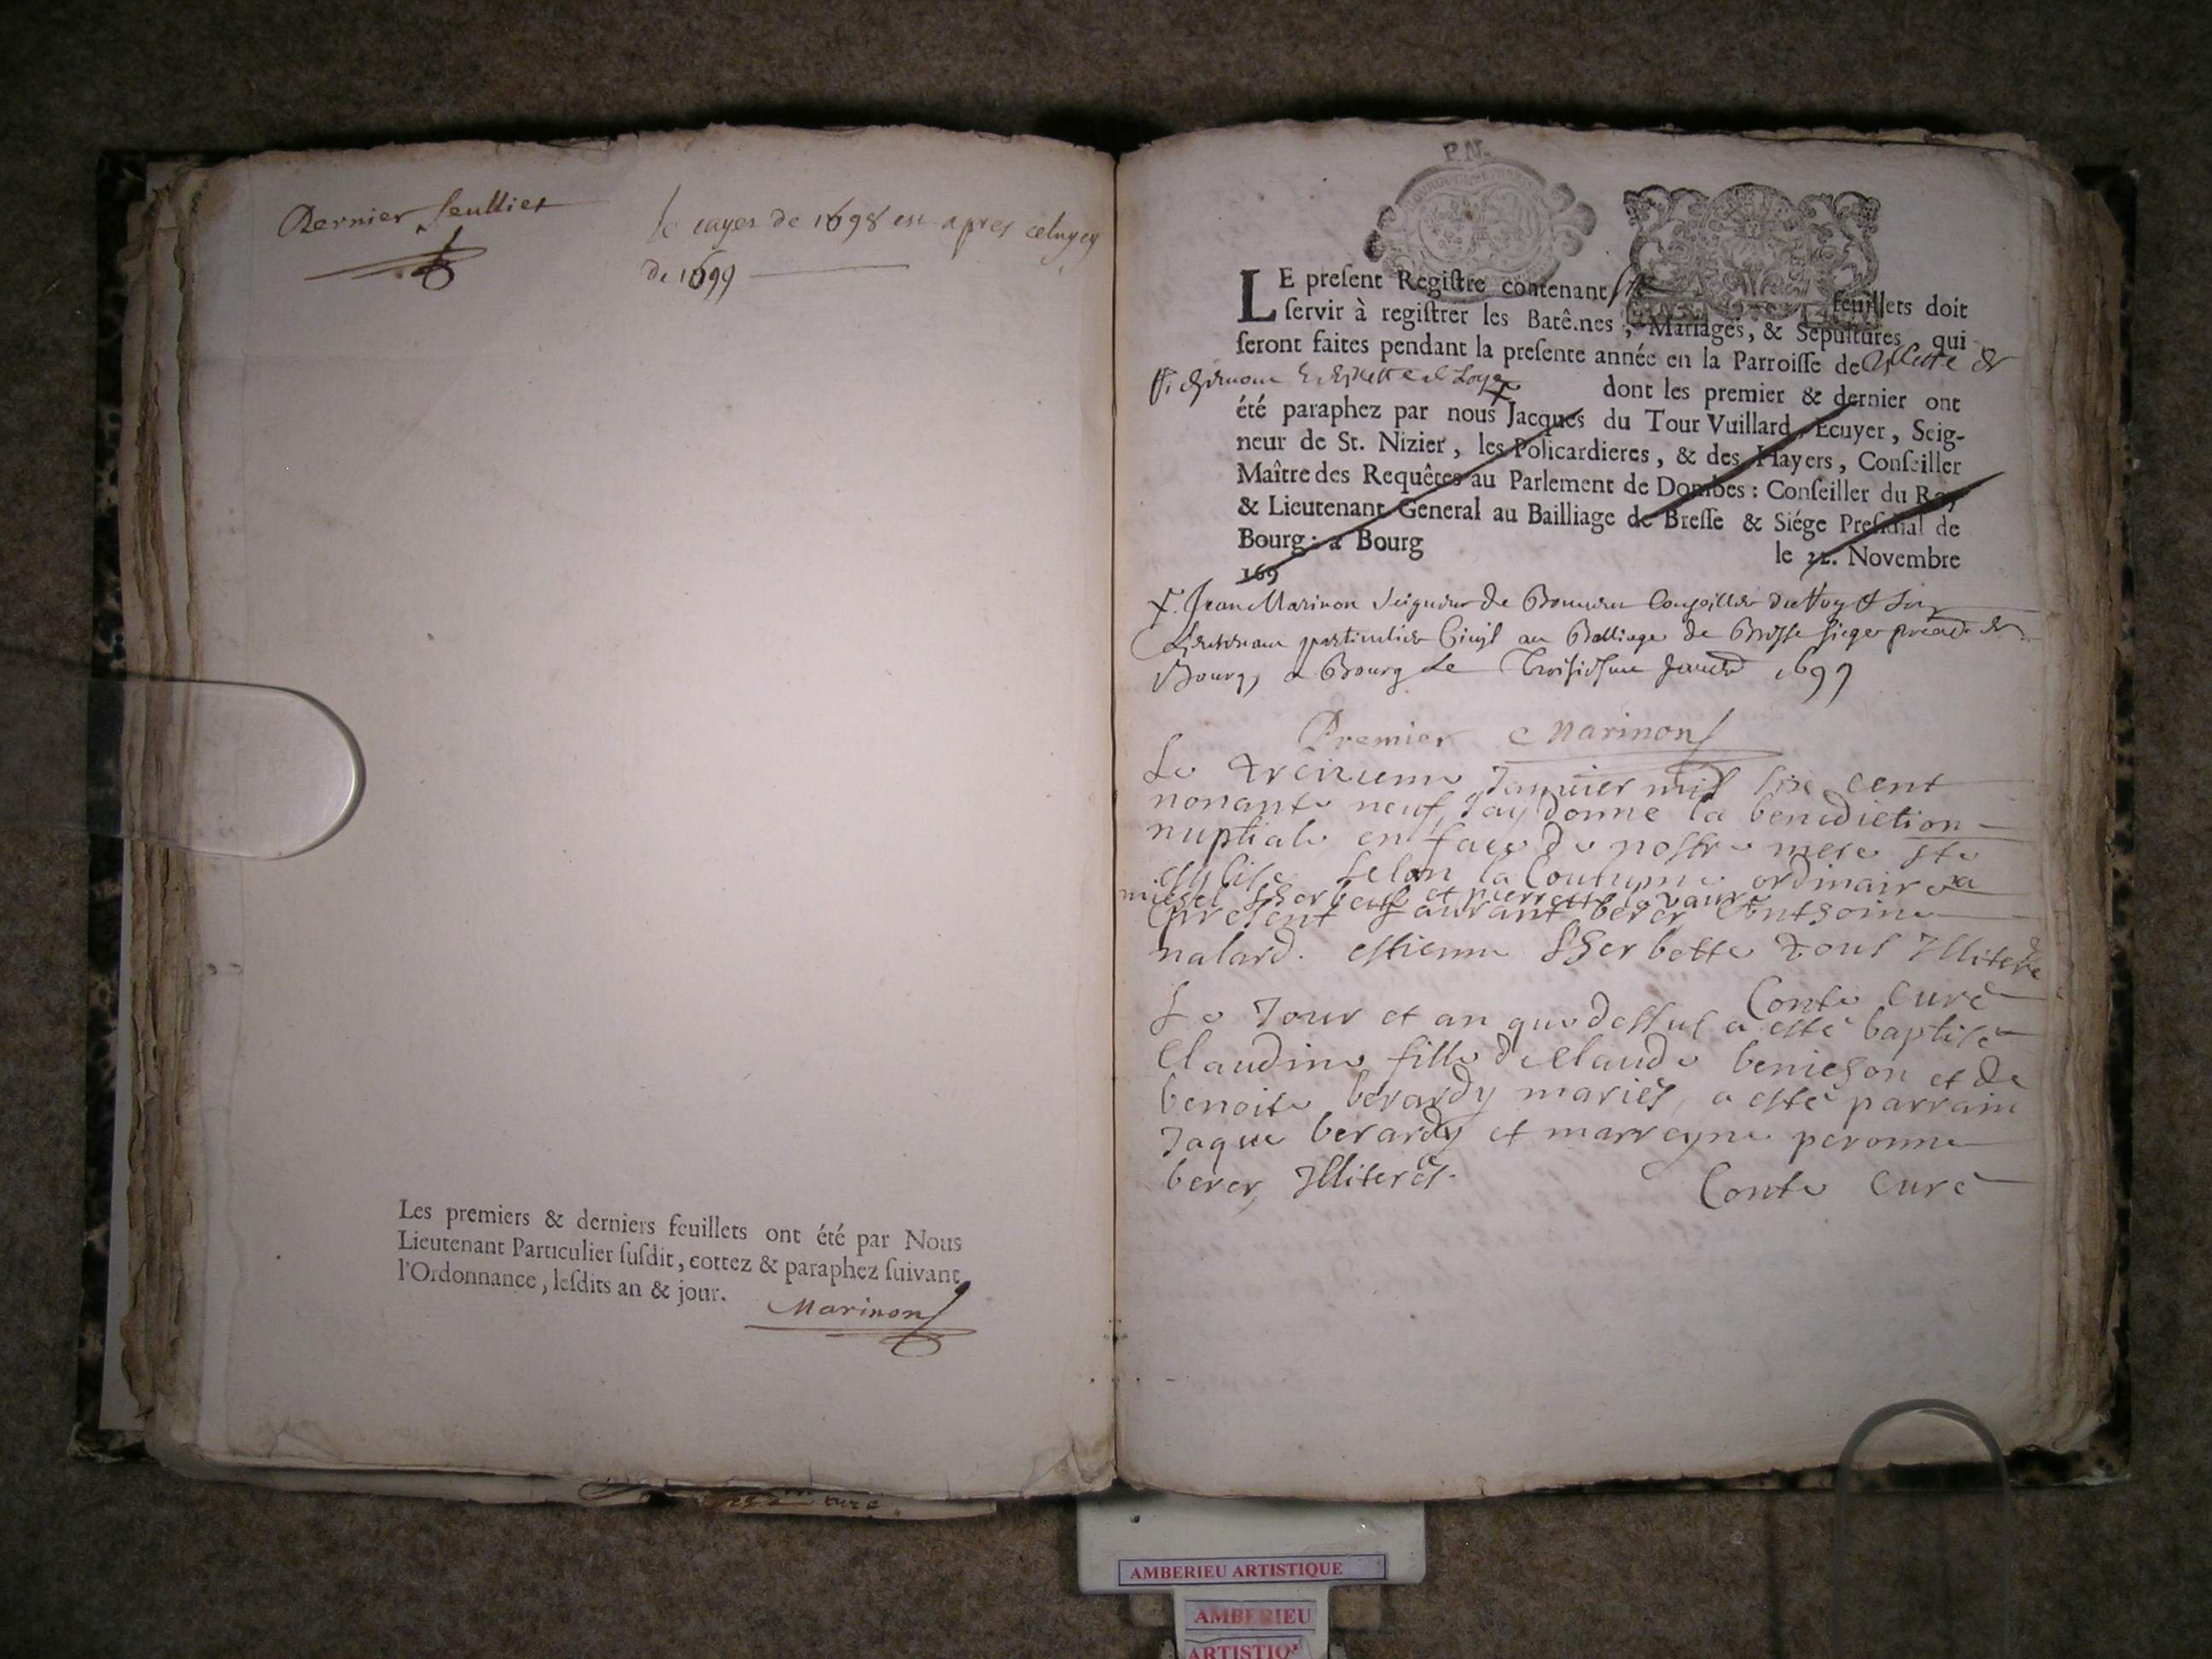 Dernier feullier
le cayer de 1698 est apres celuycy
de 1699
Les premiers & derniers feuillets ont été par Nous
Lieutenant Particulier susdit, cottez & paraphez suivant
l'Ordonnance, lesdits an & jour.
Marinon
P.N.
LE present Registre contenant feuillets doit
servir à registrer les Batêmes, Mariages, & Sepultures qui
seront faites pendant la presente année en la Parroisse de
dont les premier & dernier ont
été paraphez par nous Jacques du Tour Vuillard, Ecuyer, Seig-
neur de St. Nizier, les Policardieres, & des Hayers, Conseiller
Maître des Requêtes au Parlement de Dombes : Conseiller du Roy
& Lieutenant General au Bailliage de Bresse & Siége Presidial de
Bourg : à Bourg le 22. Novembre
169
Jean Marinon Seigneur de Conseiller du Roy &
Lieutenant particulier Civil au Balliage de Bresse siege de
Bourg, a Bourg le Troisiesme Janvier 1699
Premier Marinon
Le treizieme Januier mil six cent
nonante neuf Jay donne la benediction
nuptiale en face de nostre mere ste
esglise selon la Coutume ordinaire a
michel et pierrette
present laurant berer Anthoine
nalard. estienne Lherbette tous Illiteré
Conte Curé
Le Jour et an que dessus a esté baptisé
Claudine fille de Claude benichon et de
benoite berardy mariés, a esté parrain
Jaque berardy et marreyne peronne
berer, Illiterés.
Conte Curé
AMBERIEU ARTISTIQUE
AMBERIEU
ARTISTIQ